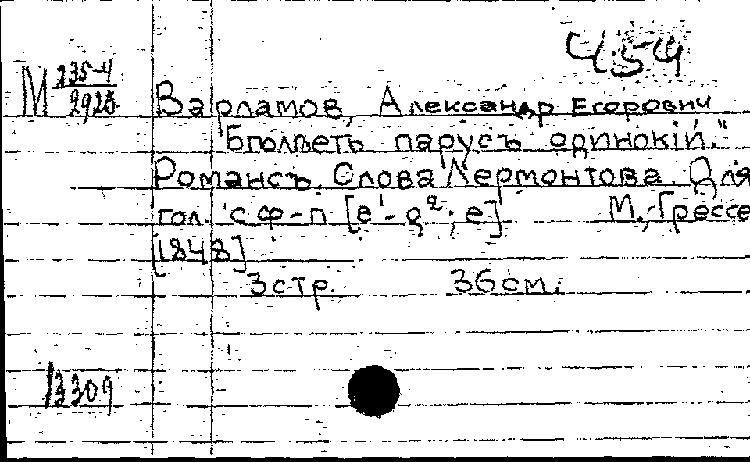 454
М 235-4
2920
Варламов, Александр Егорович
"Бѣлѣетъ парусъ одинокій."
Романсъ. Слова Лермонтова. Для
гол. с ф-п [e¹-g²; e] М., Грессе
[1848]
3 стр. 36 см.
13309